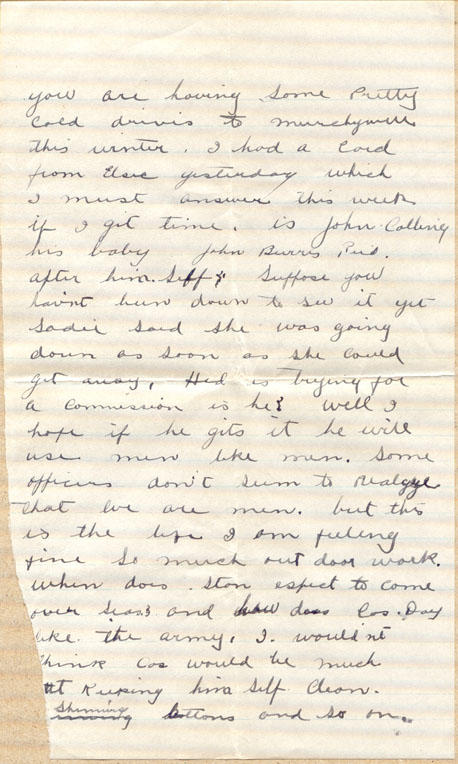 you are having some Pretty
cold drivis to murchyville
this winter. I had a Card
from Elsie yesterday which
I must answer this week
if I git time. is John Calling
his baby John Burris Reid.
after him Self? Suppose you
havnt been down to see it yet
Sadie said she was going
down as soon as she could
get away, Hed is trying for
a Commission is he? Well I
hope if he gits it he will
use men like men. Some
officers don't seem to
that we are men. but this
is the life I am feeling
fine So much out door work.
When does Stan espect to come
over Seas? and how does Cos. Day
like the army, I wouldn't
think Cos would be much
at Keeping him Self Clean.
Shinning buttons and so on.